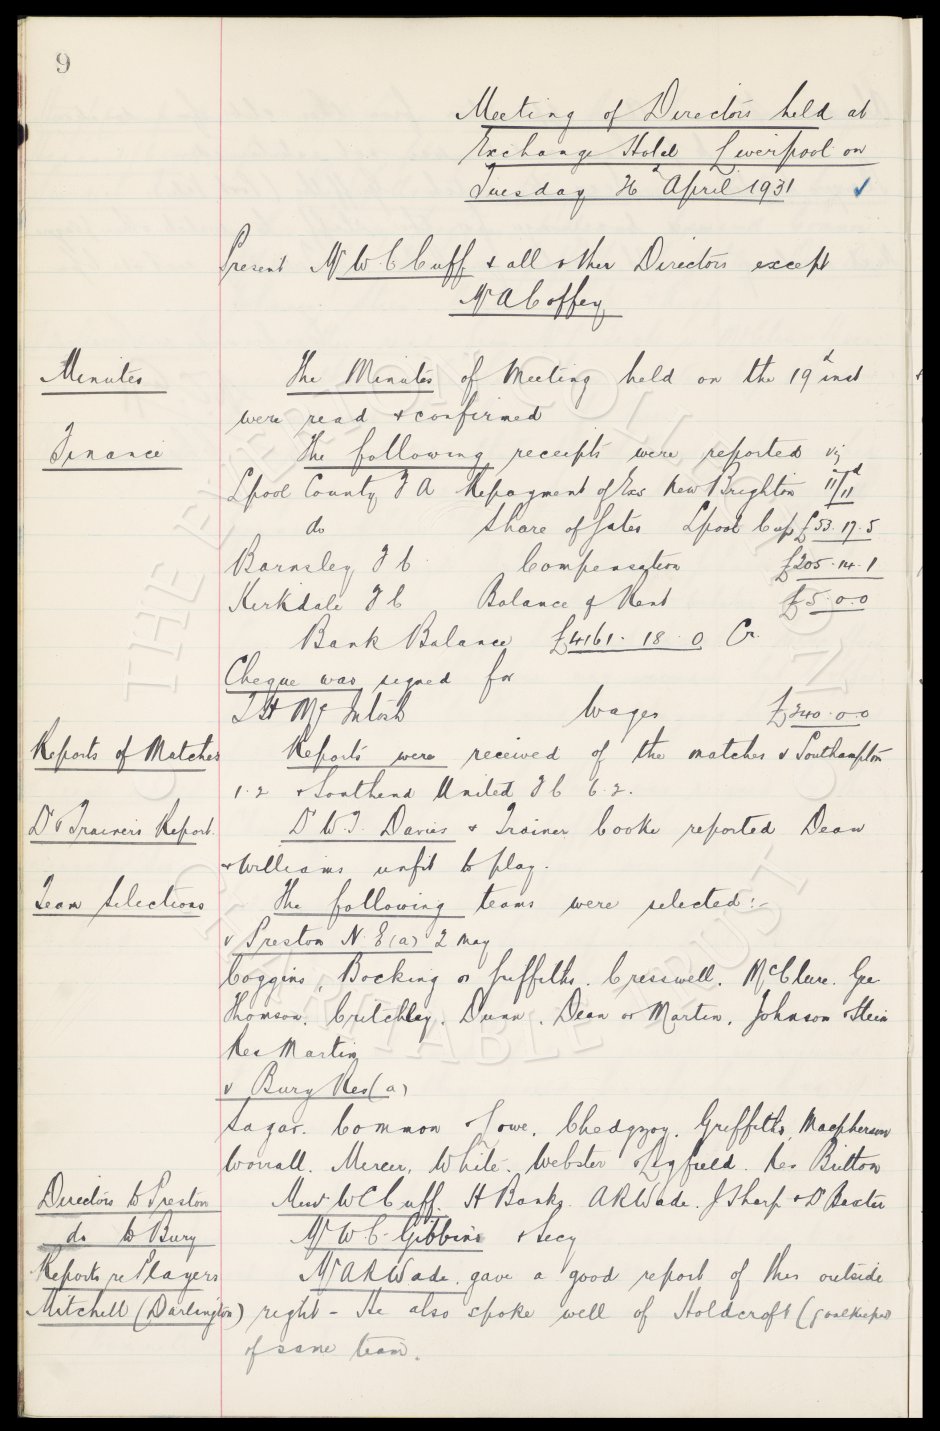 9
Meeting of Directors held at
Exchange Hotel Liverpool on
Tuesday 26 April 1931 ✓
Present Mr W. C. Cuff & all other Directors except
Mr A Coffey
Minutes The Minutes of Meeting held on the 19th inst
were read & confirmed
Finance The following receipts were reported viz
Lpool County F A Repayment of Exs New Brighton 11/11d
do Share of Gates Lpool Cup £53.17.5
Barnsley F C Compensation £205.14.1
Kirkdale F C Balance of Rent £5.0.0
Bank Balance £4161.18.0 Cr.
Cheque was signed for
T H Mc Intosh Wages £340.0.0
Reports of Matches Reports were received of the matches v Southampton
1.2 & Southend United F C 6.2.
Dr & Trainers Report. Dr W. T. Davies & Trainer Cooke reported Dean
& Williams unfit to play.
Team Selections The following teams were selected:-
v Preston N. E (a) 2 May
Coggins, Bocking or Griffiths. Cresswell. McClure. Gee.
Thomson. Critchley. Dunn. Dean or Martin. Johnson & Stein
Res Martin
v Bury Res (a)
Sagar. Common & Lowe. Chedgzoy. Griffiths, Macpherson
Worrall. Mercer. White. Webster & Rigby Res Britton
Directors to Preston Messrs W C Cuff. H Banks. A R Wade. J Sharp & Dr Baxter
do to Bury Mr W. C. Gibbins & Secy
Reports re Players Mr A R Wade. gave a good report of this outside
Mitchell (Darlington) right - He also spoke well of Holdcroft (goalkeeper)
of same team.
THE EVERTON COLLECTION
CHARITABLE TRUST